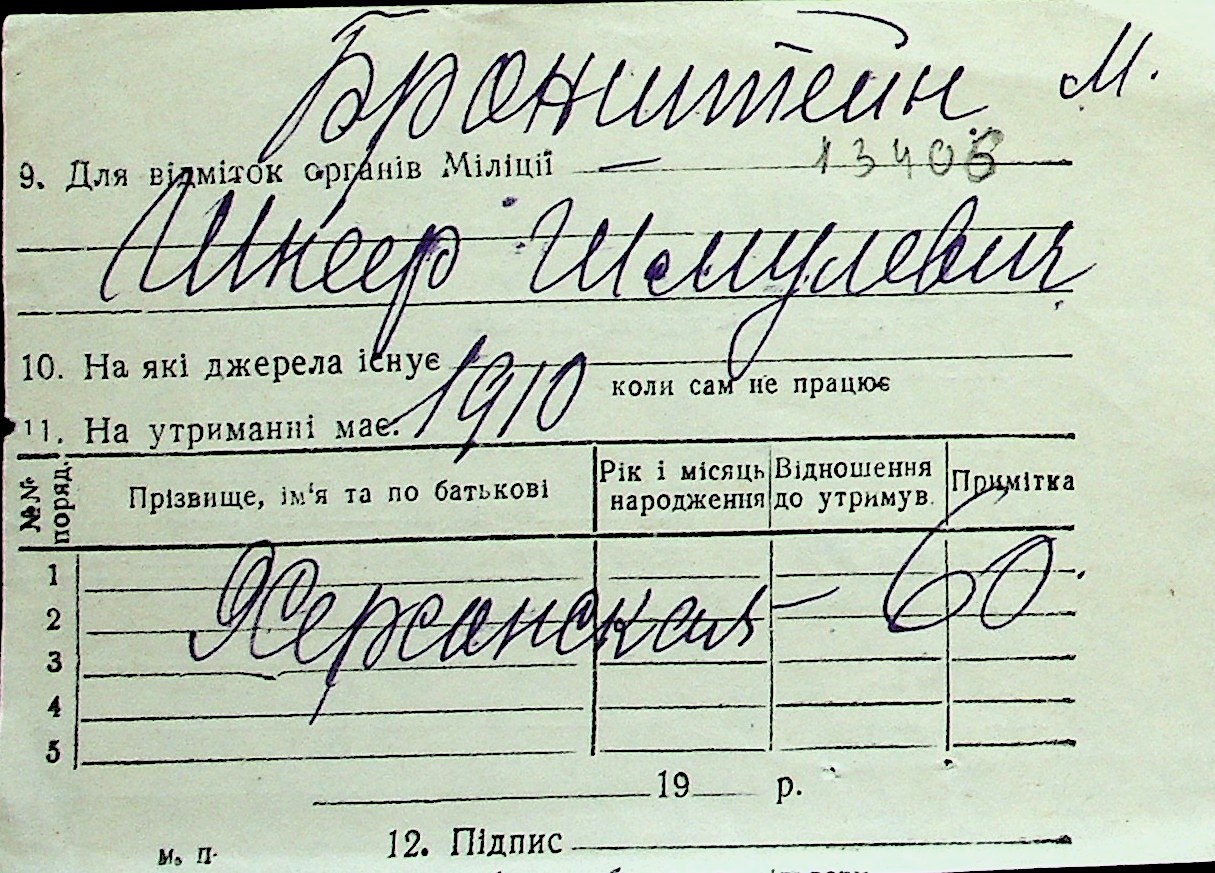 Бронштейн М.
9. Для відміток органів Міліції — 13406
Шнеер Шмулевич
10. На які джерела існує
коли сам не працює
11. На утриманні має. 1910
№№ поряд. Прізвище, ім'я та по батькові Рік і місяць народження Відношення до утримув. Примітка
1
2 Херсонская – 60.
3
4
5
19 р.
м. п. 12. Підпис